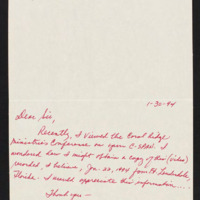 1-30-94
Dear Sir,
Recently, I viewed the Coral Ridge
Ministries Conference on upon C-SPAN. I
wondered how I might obtain a copy of this (video)
recorded, I believe, Jan. 22, 1994 from Ft. Lauderdale,
Florida. I would appreciate this information....
Thank you —